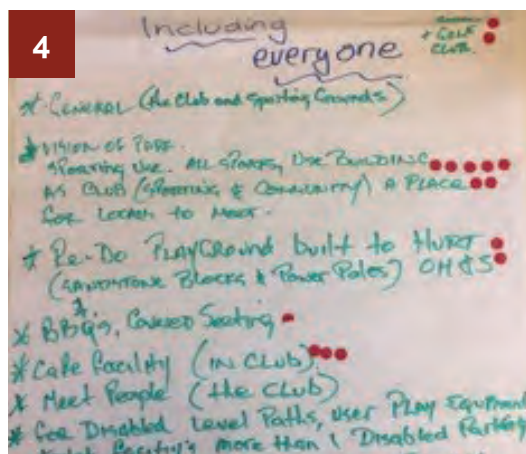 4
Including
everyone
+ GOLF
CLUB
* GENERAL (the Club and Sporting Grounds)
* VISION OF PARK.
SPORTING USE. ALL SPORTS, USE BUILDING
AS CLUB (SPORTING & COMMUNITY) A PLACE
FOR LOCALS TO MEET.
* Re-Do PLAYGROUND built to HURT
(SANDSTONE BLOCKS & Power Poles) OH&S
* BBQ's, Covered Seating
* Cafe Facility (IN CLUB)
* Meet People (the CLUB)
* For Disabled Level Paths, user PLAY Equipment
more than 1 Disabled Parking